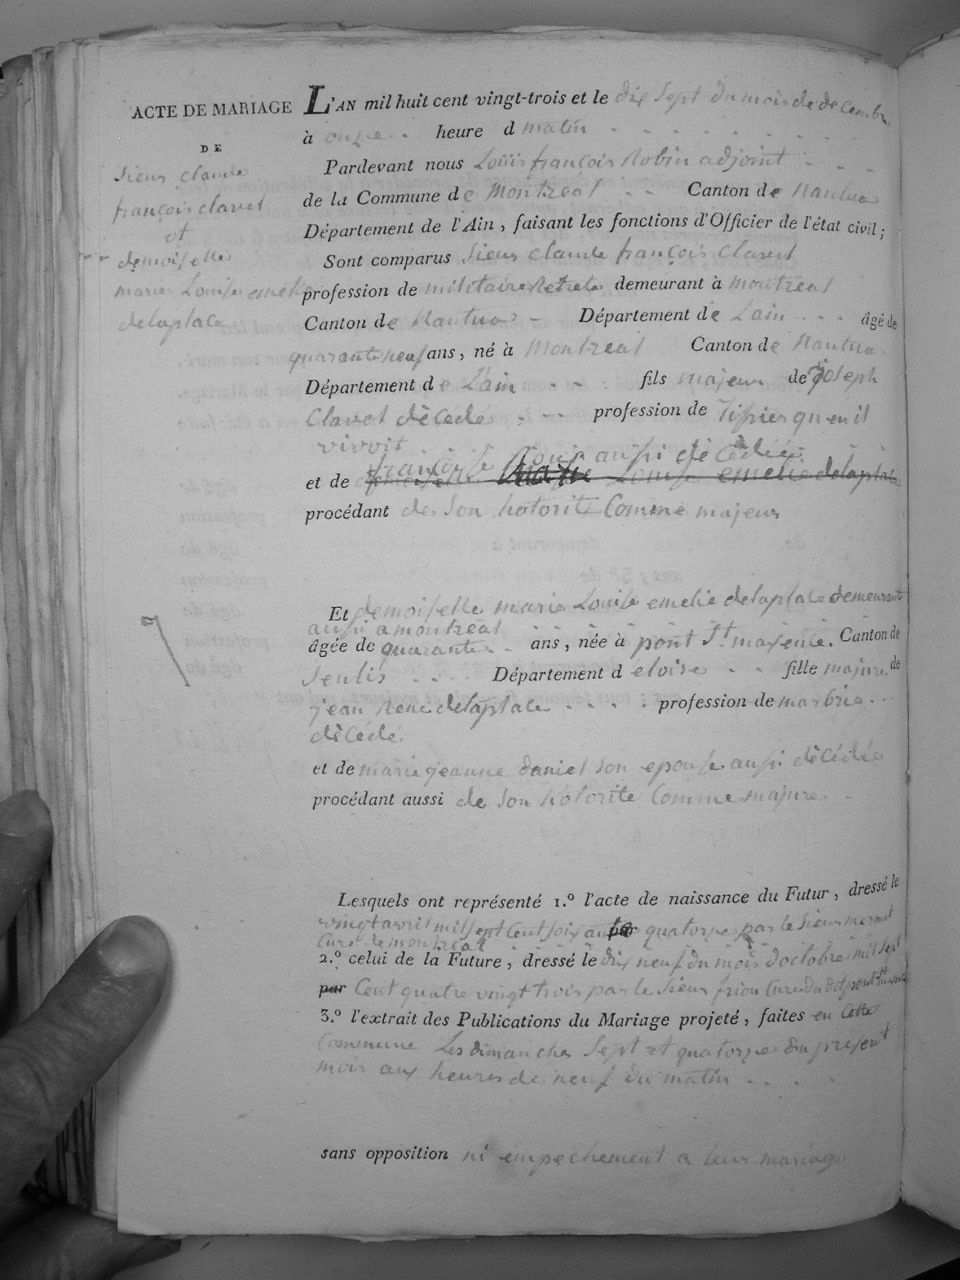 ACTE DE MARIAGE
DE
Sieur claude
françois clavet
et
demoiselle
marie Louise emelie
delaplace
L'AN mil huit cent vingt-trois et le dix Sept du mois de decembre
à onze heure d matin
Pardevant nous Louis françois Robin adjoint
de la Commune de Montreal Canton de Nantua
Département de l'Ain, faisant les fonctions d'Officier de l'état civil;
Sont comparus Sieur claude françois Clavet
profession de militaire Retreté demeurant à montreal
Canton de Nantua Département de Lain âgé de
quarante neuf ans, né à Montreal Canton de Nantua
Département de L'ain fils majeur de Joseph
Clavet dècedé profession de Tissier quen il
vivoit
françoise aussi dècedée
et de demoiselle Louise emelie delaplace
procédant de Son hotorité Comme majeur
Et demoiselle marie Louise emelie delaplace demeurant
aussi a montreal
âgée de quarante ans, née à pont St. maxence. Canton de
Senlis Département d eloise fille majure de
jean René delaplace profession de
dècédé
et de marie jeanne daniel son epouse aussi dècédée
procédant aussi de Son hotorité Comme majure
Lesquels ont représenté 1.º l'acte de naissance du Futur, dressé le
vingt avril mil sept Cent soixante quatorze par le Sieur
Curet de montreal
2.º celui de la Future, dressé le dix neuf du mois doctobre mil sept
par Cent quatre vingt trois par le Sieur Curé du dit pont St
3.º l'extrait des Publications du Mariage projeté, faites en Cette
Commune Les dimanches Sept et quatorze du present
mois aux heures de neuf du matin
sans opposition ni empechement a leur mariage